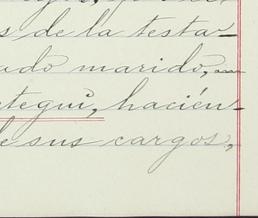 s de la testa-
ado marido,
tegui, hacién-
de sus cargos,